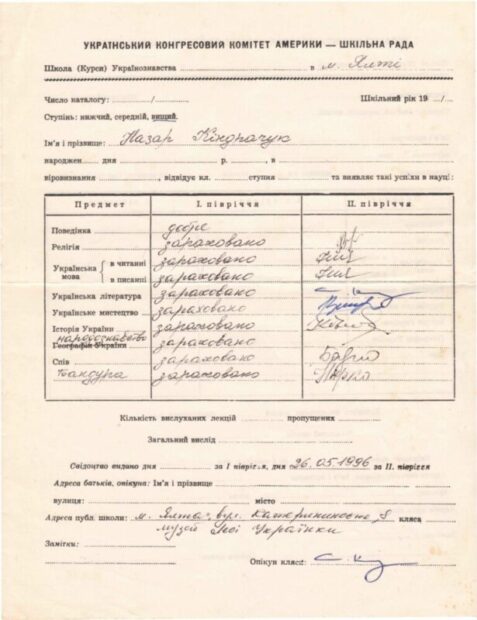 УКРАЇНСЬКИЙ КОНГРЕСОВИЙ КОМІТЕТ АМЕРИКИ — ШКІЛЬНА РАДА
Школа (Курси) Українознавства в м. Ялті
Число каталогу: / Шкільний рік 19 /
Ступінь: нижчий, середній, вищий.
Ім'я і прізвище: Назар Кондрачук
народжен дня р. , в
віровизнання , відвідує кл. ступня та виявляє такі успіхи в науці:
Предмет І. півріччя ІІ. півріччя
Поведінка добре
Релігія зараховано
Українська мова { в читанні зараховано
в писанні зараховано
Українська література зараховано
Українське мистецтво зараховано
Історія України зараховано
народознавство
Географія України зараховано
Спів зараховано
Бандура зараховано
Кількість вислуханих лекцій пропущених
Загальний вислід
Свідоцтво видано дня за І півріччя, дня 26.05.1996 за ІІ. півріччя
Адреса батьків, опікуна: Ім'я і прізвище
вулиця: місто
Адреса публ. школи: м. Ялта, вул. Катерининська 8 кляса
музей Лесі Українки
Замітки:
Опікун кляси: